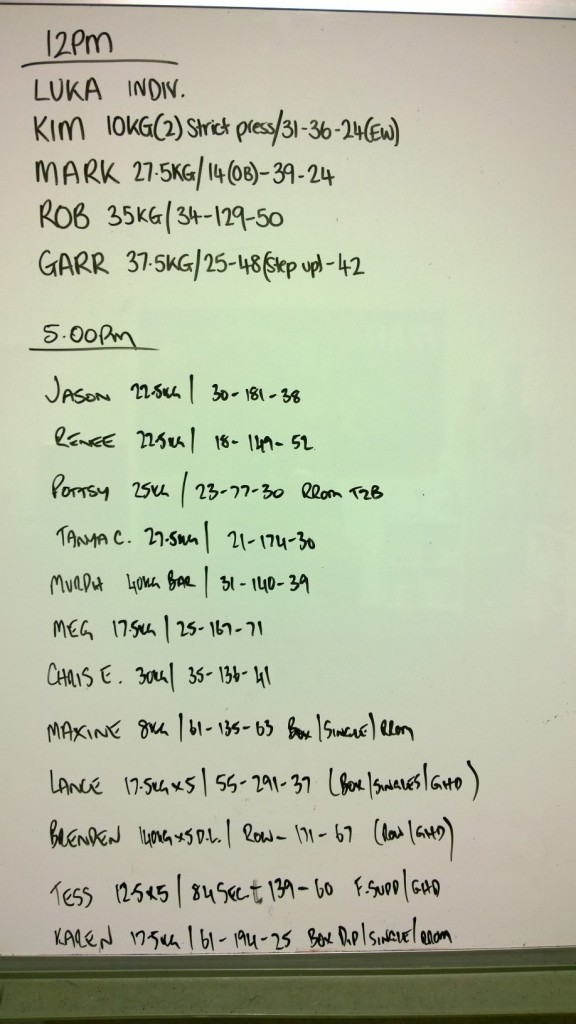 12PM
LUKA INDIV.
KIM 10KG(2) Strict press/31-36-24(EW)
MARK 27.5KG/14(OB)-39-24
ROB 35KG/34-129-50
GARR 37.5KG/25-48(Step up)-42
5.00PM
JASON 22.5KG | 30-181-38
RENEE 22.5KG | 18-149-52
POTTSY 25KG / 23-77-30 RROM T2B
TANYA C. 27.5KG | 21-174-30
MURPH 40KG BAR | 31-140-39
MEG 17.5KG | 25-167-71
CHRIS E. 30KG | 35-136-41
MAXINE 8KG | 61-135-63 BOX | SINGLE | RROM
LANCE 17.5KG x5 | 55-291-37 (BOX | SINGLES | GHD)
BRENDEN 140KG x5 D.L. | ROW-171-67 (ROW | GHD)
TESS 12.5x5 | 84 SEC 139-60 F.SUPP | GHD
KAREN 17.5KG | 61-194-25 BOX DIP | SINGLE | RROM